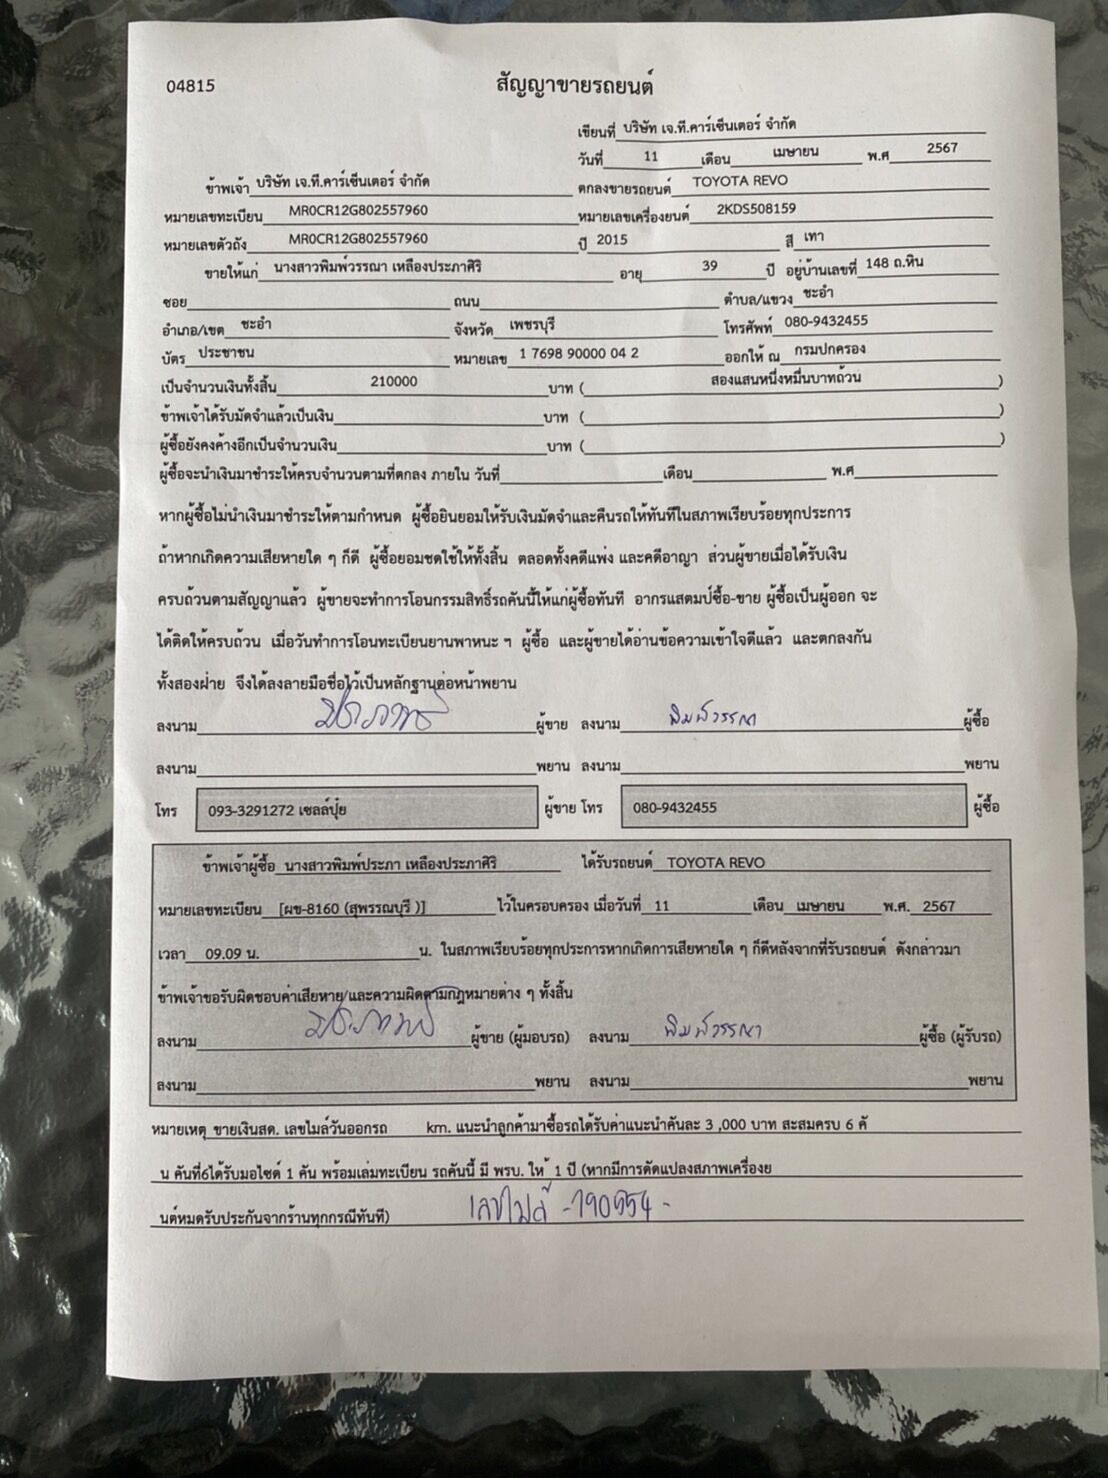 04815
สัญญาขายรถยนต์
เขียนที่ บริษัท เจ.ที.คาร์เซ็นเตอร์ จำกัด
วันที่ 11 เดือน เมษายน พ.ศ 2567
ข้าพเจ้า บริษัท เจ.ที.คาร์เซ็นเตอร์ จำกัด ตกลงขายรถยนต์ TOYOTA REVO
หมายเลขทะเบียน MR0CR12G802557960 หมายเลขเครื่องยนต์ 2KDS508159
หมายเลขตัวถัง MR0CR12G802557960 ปี 2015 สี เทา
ขายให้แก่ นางสาวพิมพ์วรรณา เหลืองประภาศิริ อายุ 39 ปี อยู่บ้านเลขที่ 148 ถ.หิน
ซอย ถนน ตำบล/แขวง ชะอำ
อำเภอ/เขต ชะอำ จังหวัด เพชรบุรี โทรศัพท์ 080-9432455
บัตร ประชาชน หมายเลข 1 7698 90000 04 2 ออกให้ ณ กรมปกครอง
เป็นจำนวนเงินทั้งสิ้น 210000 บาท ( สองแสนหนึ่งหมื่นบาทถ้วน )
ข้าพเจ้าได้รับมัดจำแล้วเป็นเงิน บาท ( )
ผู้ซื้อยังคงค้างอีกเป็นจำนวนเงิน บาท ( )
ผู้ซื้อจะนำเงินมาชำระให้ครบจำนวนตามที่ตกลง ภายใน วันที่ เดือน พ.ศ
หากผู้ซื้อไม่นำเงินมาชำระให้ตามกำหนด ผู้ซื้อยินยอมให้รับเงินมัดจำและคืนรถให้ทันทีในสภาพเรียบร้อยทุกประการ
ถ้าหากเกิดความเสียหายใด ๆ ก็ดี ผู้ซื้อยอมชดใช้ให้ทั้งสิ้น ตลอดทั้งคดีแพ่ง และคดีอาญา ส่วนผู้ขายเมื่อได้รับเงิน
ครบถ้วนตามสัญญาแล้ว ผู้ขายจะทำการโอนกรรมสิทธิ์รถคันนี้ให้แก่ผู้ซื้อทันที อากรแสตมป์ซื้อ-ขาย ผู้ซื้อเป็นผู้ออก จะ
ได้ติดให้ครบถ้วน เมื่อวันทำการโอนทะเบียนยานพาหนะ ฯ ผู้ซื้อ และผู้ขายได้อ่านข้อความเข้าใจดีแล้ว และตกลงกัน
ทั้งสองฝ่าย จึงได้ลงลายมือชื่อไว้เป็นหลักฐานต่อหน้าพยาน
ลงนาม ผู้ขาย ลงนาม พิมพ์วรรณา ผู้ซื้อ
ลงนาม พยาน ลงนาม พยาน
โทร 093-3291272 เซลล์ปุ๋ย ผู้ขาย โทร 080-9432455 ผู้ซื้อ
ข้าพเจ้าผู้ซื้อ นางสาวพิมพ์ประภา เหลืองประภาศิริ ได้รับรถยนต์ TOYOTA REVO
หมายเลขทะเบียน [ผข-8160 (สุพรรณบุรี )] ไว้ในครอบครอง เมื่อวันที่ 11 เดือน เมษายน พ.ศ. 2567
เวลา 09.09 น. น. ในสภาพเรียบร้อยทุกประการหากเกิดการเสียหายใด ๆ ก็ดีหลังจากที่รับรถยนต์ ดังกล่าวมา
ข้าพเจ้าขอรับผิดชอบค่าเสียหาย/และความผิดตามกฎหมายต่าง ๆ ทั้งสิ้น
ลงนาม ผู้ขาย (ผู้มอบรถ) ลงนาม พิมพ์วรรณา ผู้ซื้อ (ผู้รับรถ)
ลงนาม พยาน ลงนาม พยาน
หมายเหตุ ขายเงินสด. เลขไมล์วันออกรถ km. แนะนำลูกค้ามาซื้อรถได้รับค่าแนะนำคันละ 3 ,000 บาท สะสมครบ 6 คั
น คันที่6ได้รับมอไซด์ 1 คัน พร้อมเล่มทะเบียน รถคันนี้ มี พรบ. ให้ 1 ปี (หากมีการดัดแปลงสภาพเครื่องย
นต์หมดรับประกันจากร้านทุกกรณีทันที) เลขไมล์ -190554-